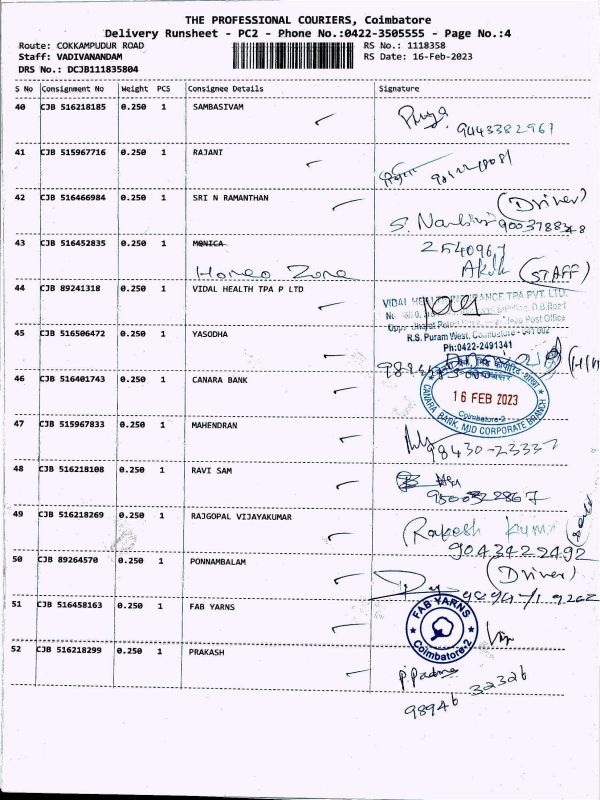 THE PROFESSIONAL COURIERS, Coimbatore
Delivery Runsheet - PC2 - Phone No.:0422-3505555 - Page No.:4
Route: COKKAMPUDUR ROAD RS No.: 1118358
Staff: VADIVANANDAM RS Date: 16-Feb-2023
DRS No.: DCJB111835804
S No Consignment No Weight PCS Consignee Details Signature
40 CJB 516218185 0.250 1 SAMBASIVAM Priya
9443382961
41 CJB 515967716 0.250 1 RAJANI
42 CJB 516466984 0.250 1 SRI N RAMANTHAN (Driver)
43 CJB 516452835 0.250 1 MONICA 2540967
Homeo Zone (STAFF)
44 CJB 89241318 0.250 1 VIDAL HEALTH TPA P LTD
VIDAL HEALTH INSURANCE TPA PVT. LTD.
R.S. Puram West, Coimbatore - 641 002
Ph:0422-2491341
45 CJB 516506472 0.250 1 YASODHA
46 CJB 516401743 0.250 1 CANARA BANK
16 FEB 2023
Coimbatore-2
CANARA BANK, MID CORPORATE BRANCH
47 CJB 515967833 0.250 1 MAHENDRAN
98430-23337
48 CJB 516218108 0.250 1 RAVI SAM
49 CJB 516218269 0.250 1 RAJGOPAL VIJAYAKUMAR Rakesh Kumar
9043422492
50 CJB 89264570 0.250 1 PONNAMBALAM (Driver)
51 CJB 516458163 0.250 1 FAB YARNS
FAB YARNS
Coimbatore-2
52 CJB 516218299 0.250 1 PRAKASH
P. Padma
98946 32326